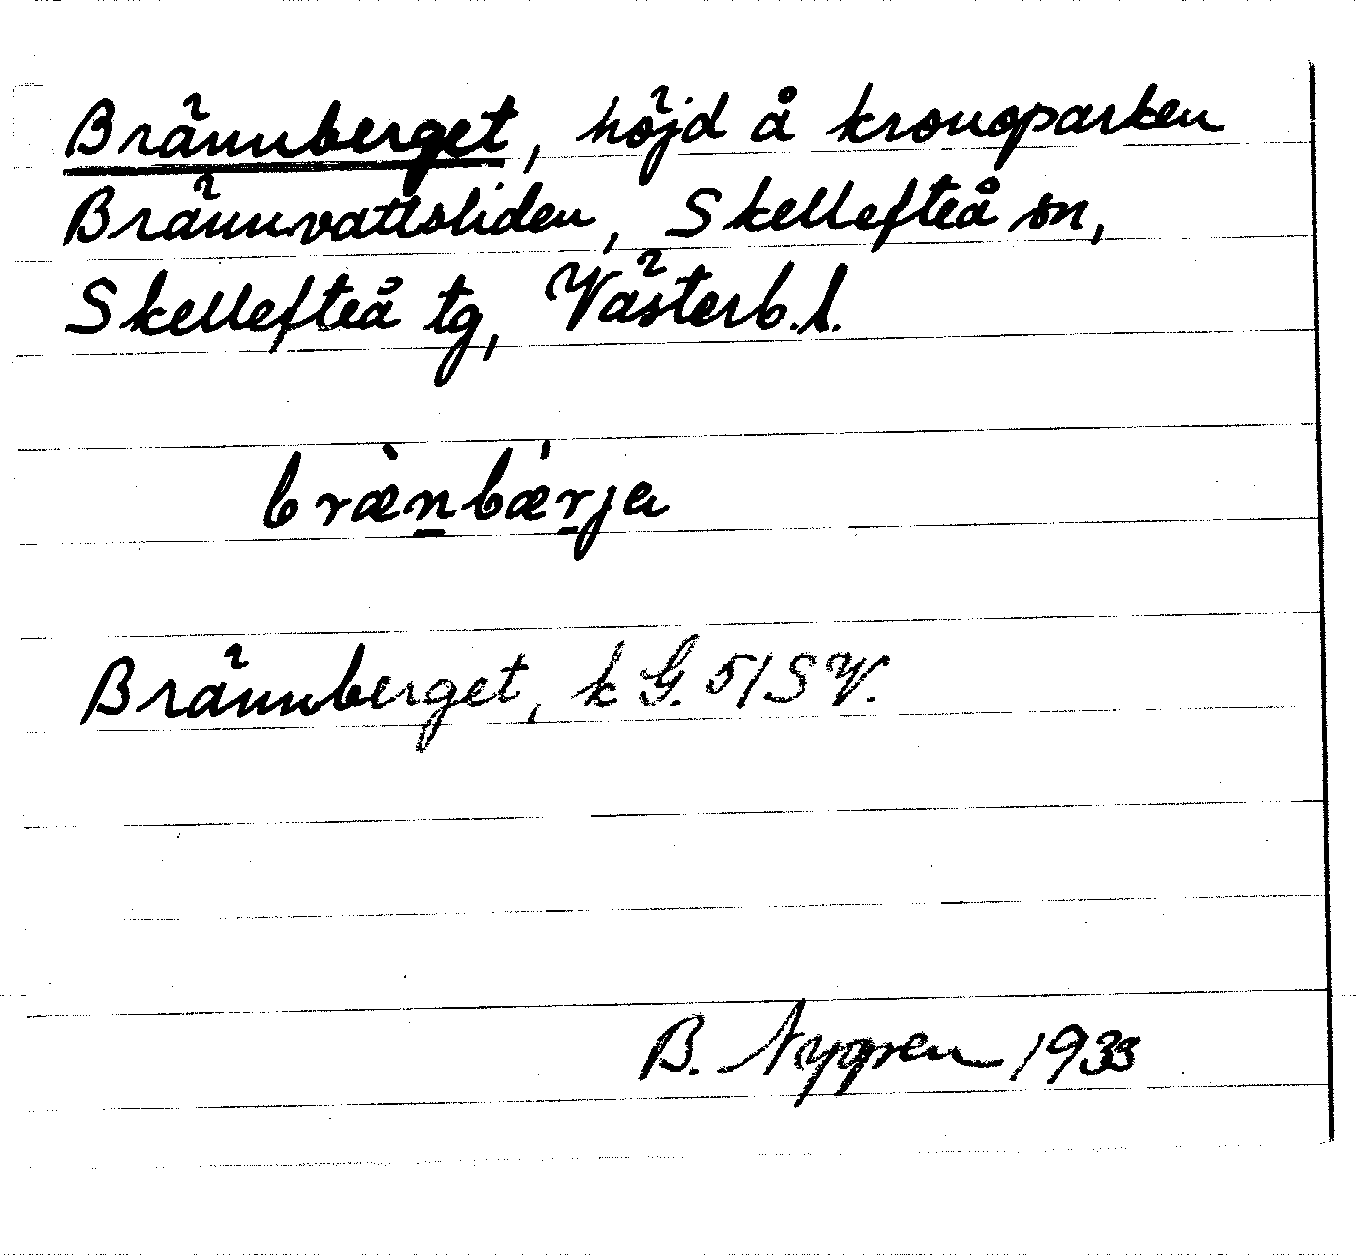 Brännberget, höjd å kronoparken
Brännvattsliden, Skellefteå sn,
Skellefteå tg, Västerb. l.
bræ̀n̲bæŕ̲ja
Brännberget, k G. 51 SV.
B. Nygren 1933